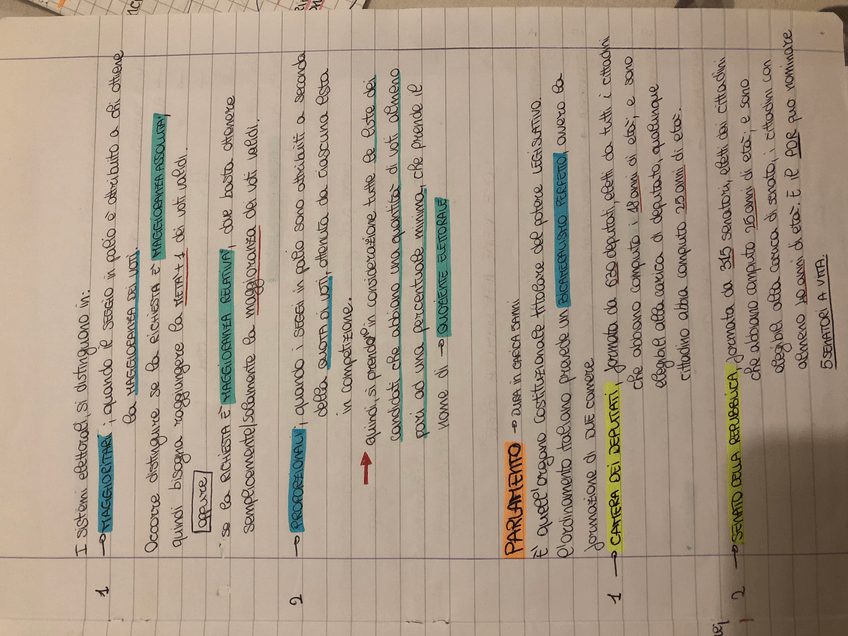 I sistemi elettorali, si distinguono in:
1 → MAGGIORITARI; quando il SEGGIO in palio è attribuito a chi ottiene
la MAGGIORANZA DEI VOTI.
Occorre distinguere se la RICHIESTA È MAGGIORANZA ASSOLUTA,
quindi bisogna raggiungere la METÀ + 1 dei voti validi.
oppure
se la RICHIESTA È MAGGIORANZA RELATIVA, dove basta ottenere
semplicemente/solamente la maggioranza dei voti validi.
2 → PROPORZIONALI; quando i SEGGI in palio sono attribuiti a seconda
della QUOTA DI VOTI, ottenuta da ciascuna lista
in competizione.
→ quindi si prende in considerazione tutte le liste dei
candidati che abbiano una quantità di voti almeno
pari ad una percentuale minima, che prende il
nome di → QUOZIENTE ELETTORALE
PARLAMENTO → DURA IN CARICA 5 ANNI
È quell'organo Costituzionale titolare del potere LEGISLATIVO.
l'ordinamento italiano prevede un BICAMERALISMO PERFETTO, ovvero la
formazione di DUE camere
1 → CAMERA DEI DEPUTATI, formata da 630 deputati, eletti da tutti i cittadini
che abbiano compiuto i 18 anni di età, e sono
eleggibili alla carica di deputato, qualunque
cittadino abbia compiuto 25 anni di età.
2 → SENATO DELLA REPUBBLICA, formata da 315 senatori, eletti dai cittadini
che abbiano compiuto 25 anni di età, e sono
eleggibili alla carica di senato, i cittadini con
almeno 40 anni di età. E il PDR può nominare
5 SENATORI A VITA.